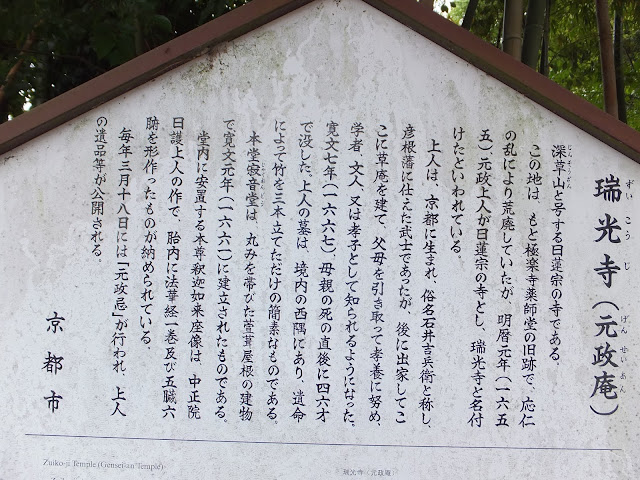 瑞光寺(元政庵)
ずいこうじ げんせいあん
深草山と号する日蓮宗の寺である。
じんそうざん
この地は、もと極楽寺薬師堂の旧跡で、応仁
の乱により荒廃していたが、明暦元年(一六五
五)、元政上人が日蓮宗の寺とし、瑞光寺と名付
けたといわれている。
上人は、京都に生まれ、俗名石井吉兵衛と称し、
彦根藩に仕えた武士であったが、後に出家してこ
こに草庵を建て、父母を引き取って孝養に努め、
学者、文人、又は孝子として知られるようになった。
寛文七年(一六六七)、母親の死の直後に四六才
で没した。上人の墓は、境内の西隅にあり、遺命
によって竹を三本立てただけの簡素なものである。
本堂寂音堂は、丸みを帯びた萱葺屋根の建物
で寛文元年(一六六一)に建立されたものである。
堂内に安置する本尊釈迦如来座像は、中正院
日護上人の作で、胎内に法華経一巻及び五臓六
腑を形作ったものが納められている。
毎年三月十八日には「元政忌」が行われ、上人
の遺品等が公開される。
京都市
Zuiko-ji Temple (Gensei-an Temple)
瑞光寺(元政庵)